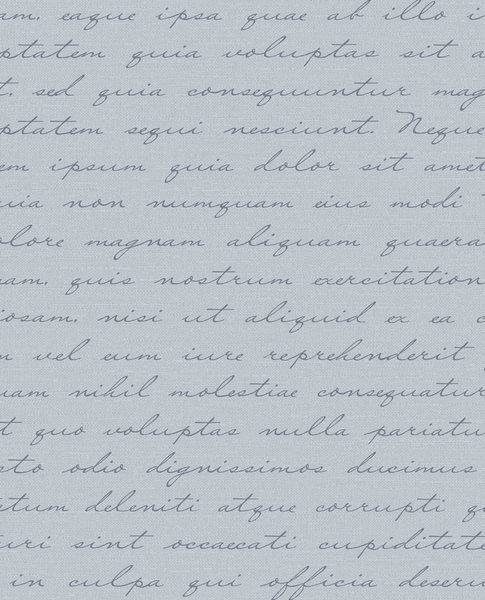 am, eaque ipsa quae ab illo i
ptatem quia voluptas sit a
t, sed quia consequuntur mag
ptatem sequi nesciunt. Neque
em ipsum quia dolor sit amet
uia non numquam eius modi
olore magnam aliquam quaera
am, quis nostrum exercitation
iosam, nisi ut aliquid ex ea c
m vel eum iure reprehenderit
uam nihil molestiae consequatur
t quo voluptas nulla pariatu
sto odio dignissimos ducimus
tum deleniti atque corrupti q
uri sint occaecati cupiditate
in culpa qui officia deseru